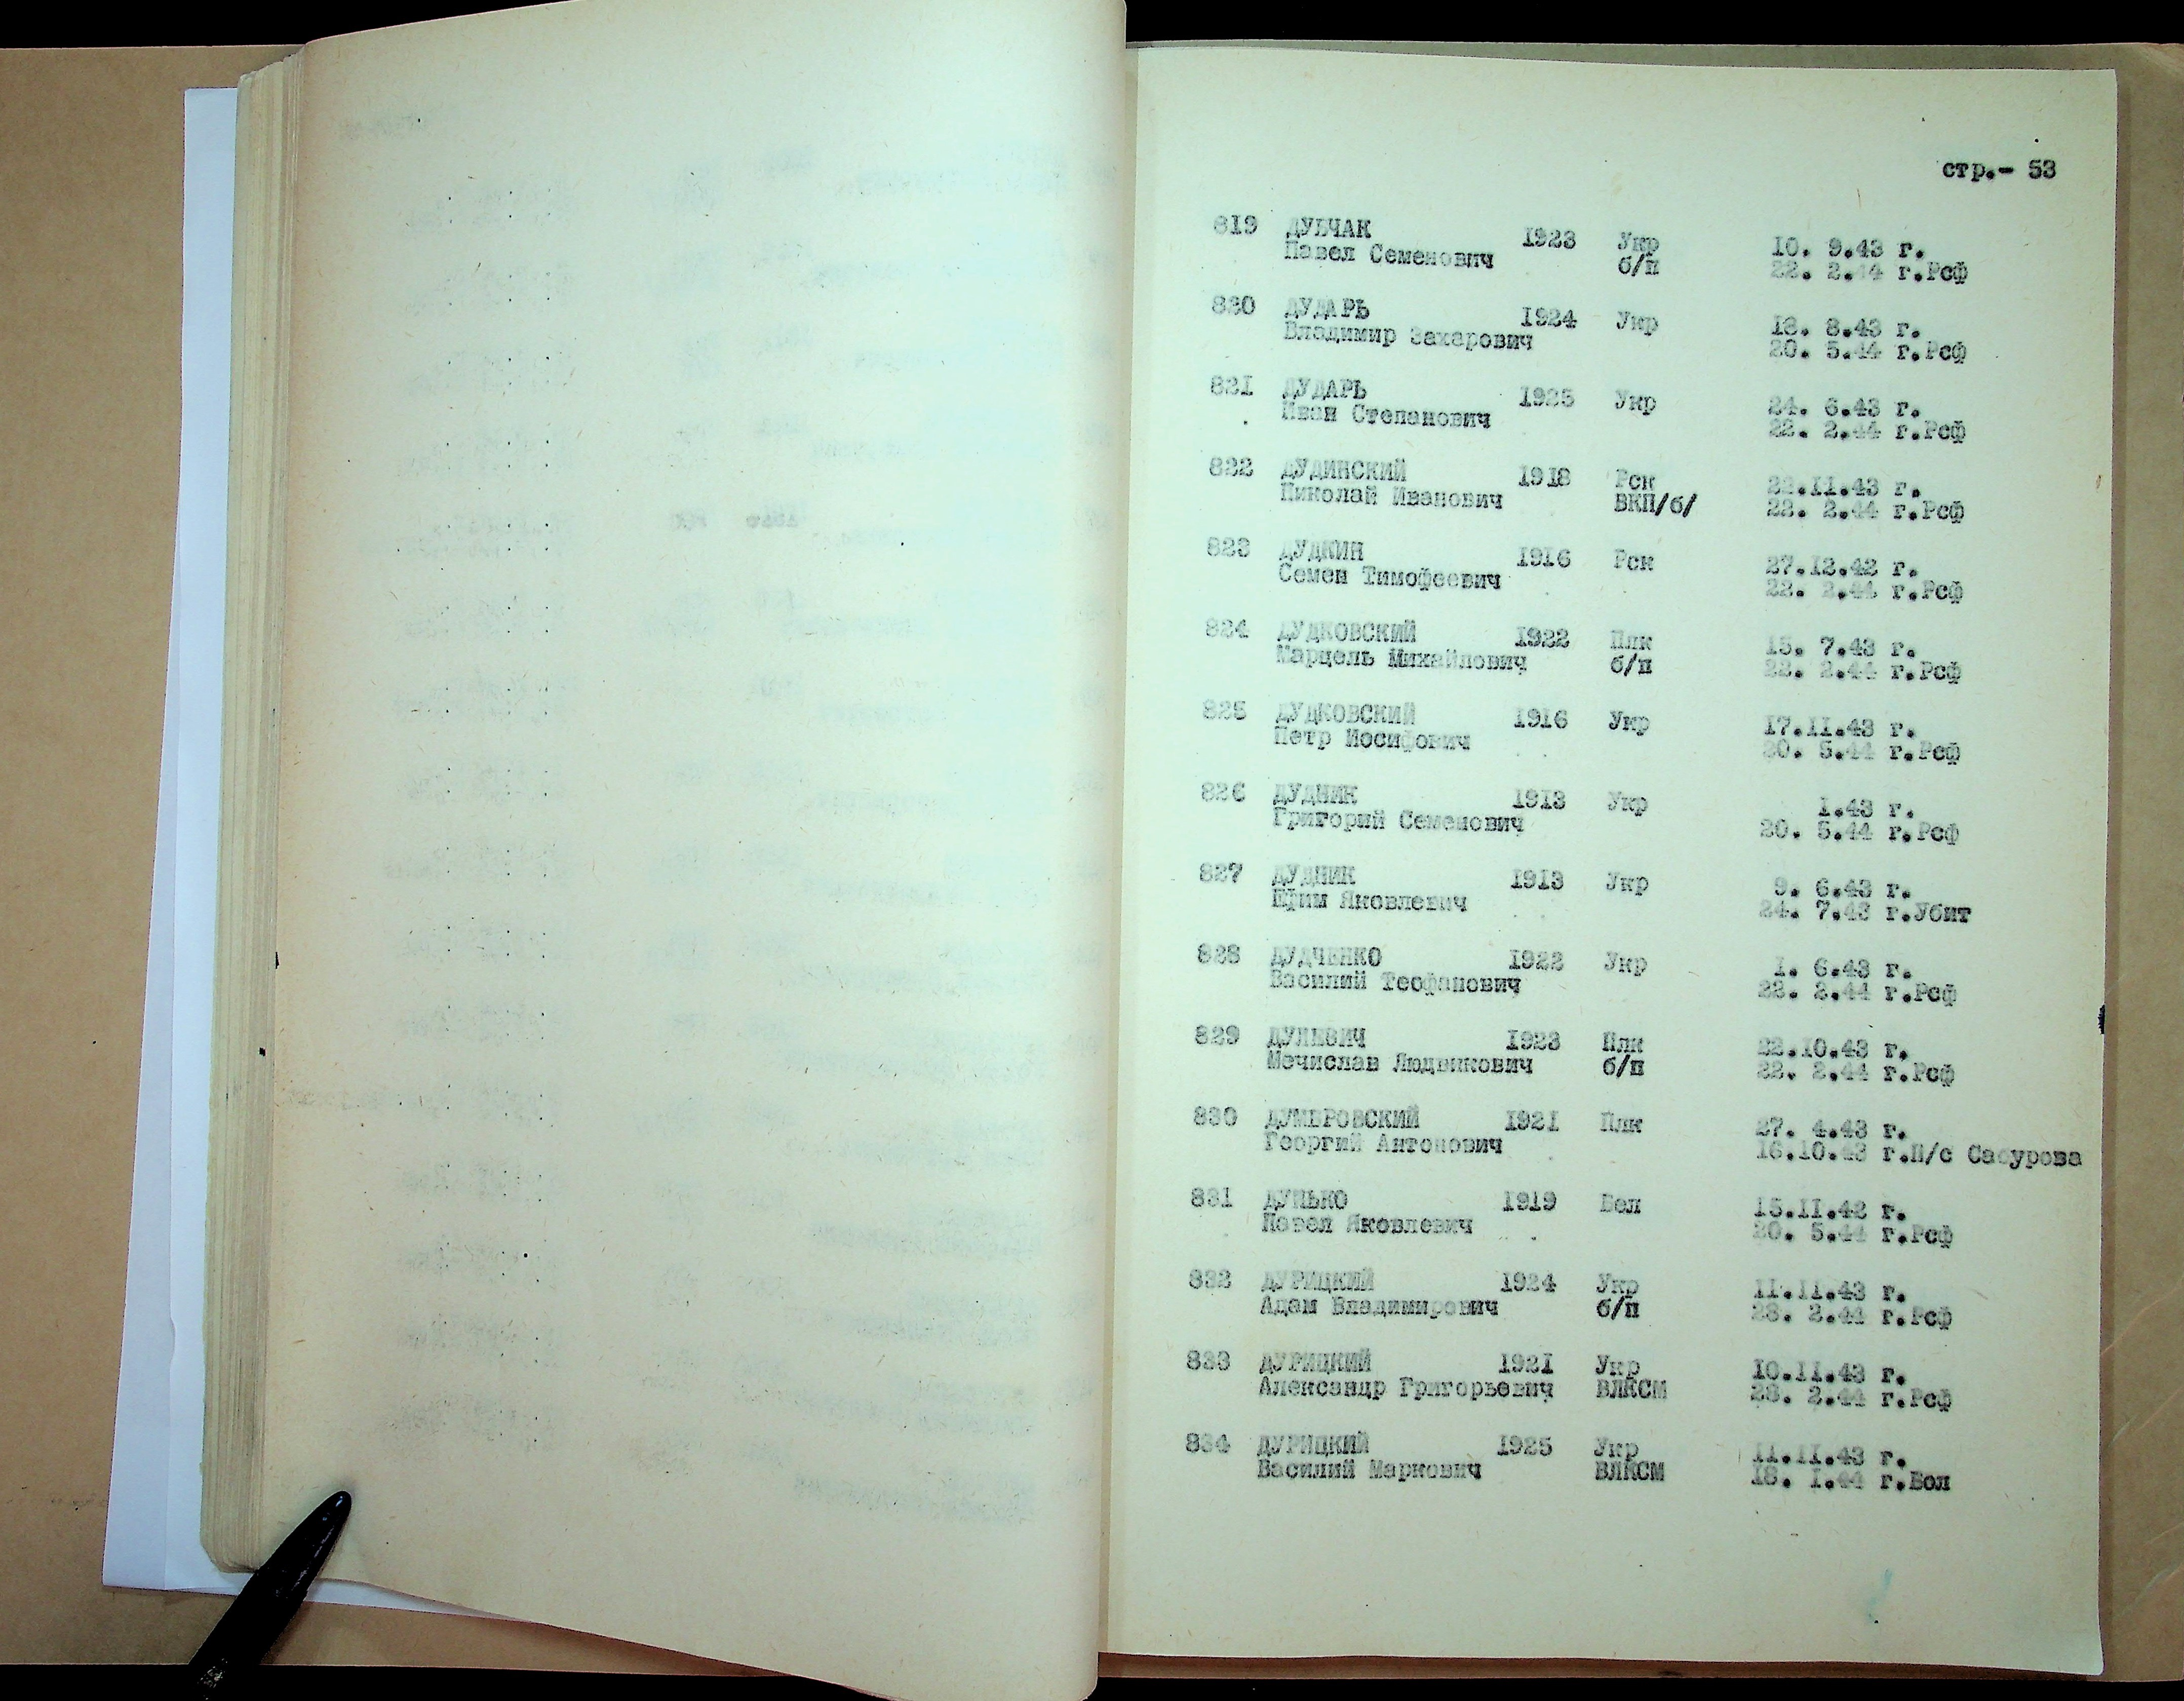 стр.- 53
819 ДУБЧАК 1923 Укр 10. 9.43 г.
Павел Семенович б/п 22. 2.44 г.Рсф
820 ДУДАРЬ 1924 Укр 18. 8.43 г.
Владимир Захарович 20. 5.44 г.Рсф
821 ДУДАРЬ 1925 Укр 24. 6.43 г.
Иван Степанович 22. 2.44 г.Рсф
822 ДУДИНСКИЙ 1918 Рск 22.11.43 г.
Николай Иванович ВКП/б/ 22. 2.44 г.Рсф
823 ДУДКИН 1916 Рск 27.12.42 г.
Семен Тимофеевич 22. 2.44 г.Рсф
824 ДУДКОВСКИЙ 1922 Плк 15. 7.43 г.
Марцель Михайлович б/п 22. 2.44 г.Рсф
825 ДУДКОВСКИЙ 1916 Укр 17.11.43 г.
Петр Иосифович 20. 5.44 г.Рсф
826 ДУДНИК 1913 Укр 1.43 г.
Григорий Семенович 20. 5.44 г.Рсф
827 ДУДНИК 1913 Укр 9. 6.43 г.
Ефим Яковлевич 24. 7.43 г.Убит
828 ДУДЧЕНКО 1922 Укр 1. 6.43 г.
Василий Теофанович 22. 2.44 г.Рсф
829 ДУЛЕВИЧ 1923 Плк 22.10.43 г.
Мечислав Людвикович б/п 22. 2.44 г.Рсф
830 ДУМБРОВСКИЙ 1921 Плк 27. 4.43 г.
Георгий Антонович 16.10.43 г.П/с Сабурова
831 ДУНЬКО 1919 Бел 15.11.42 г.
Павел Яковлевич 20. 5.44 г.Рсф
832 ДУРИЦКИЙ 1924 Укр 11.11.43 г.
Адам Владимирович б/п 28. 2.44 г.Рсф
833 ДУРИЦКИЙ 1921 Укр 10.11.43 г.
Александр Григорьевич ВЛКСМ 28. 2.44 г.Рсф
834 ДУРИЦКИЙ 1925 Укр 11.11.43 г.
Василий Маркович ВЛКСМ 18. 1.44 г.Бол